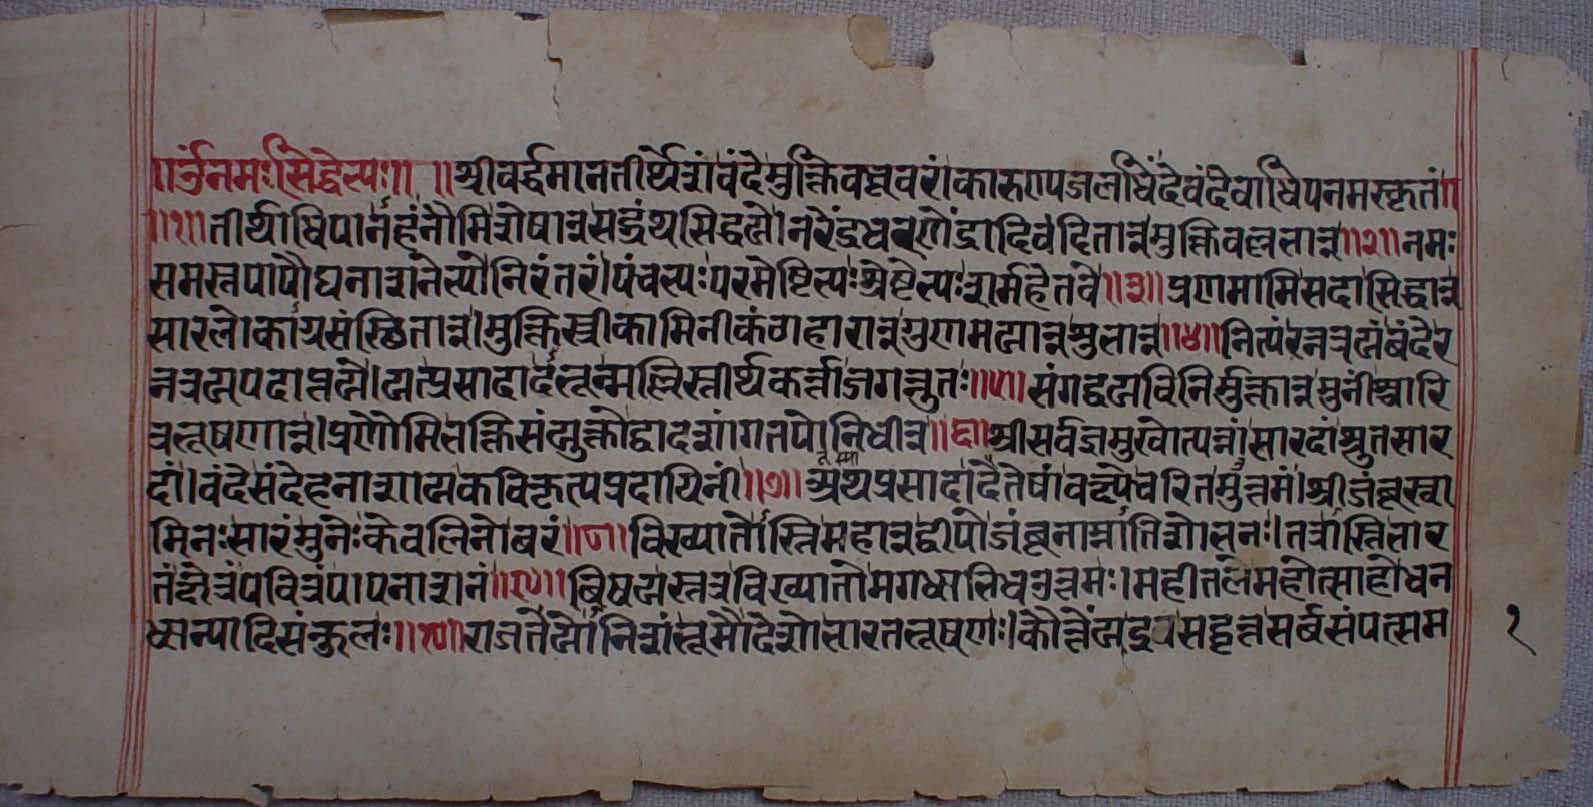 ॥ॐनमःसिद्धेभ्यः॥ ॥श्रीवर्द्धमानतीर्थेशंवंदेमुक्तिवधूवरं।कारुण्यजलधिंदेवंदेवाधिपनमस्कृतं॥
॥१॥तीर्थाधिपानर्हंनौमिशेषान्सद्ग्रंथसिद्धये।नरेंद्रधरणेंद्रादिवंदितान्मुक्तिवल्लभान्॥२॥नमः
समस्तपापौघनाशनेभ्योनिरंतरं।पंचभ्यःपरमेष्टिभ्यःश्रेष्टेभ्यःशर्महेतवे॥३॥प्रणमामिसदासिद्धान्
सारलोकाग्रसंस्छितान्।मुक्तिस्त्रीकामिनीकंठहारान्गुणमयान्शुभान्॥४॥नित्यंरत्नत्रयंबंदेर
त्नत्रयपदाप्तये।यत्प्रसादादभून्मल्लिस्तीर्थकर्त्ताजगन्नुतः॥५॥संगद्वयविनिर्मुक्तान्मुनींश्चारि
त्रभूषणान्।प्रणौमिभक्तिसंयुक्तोद्वादशांगतपोनिधीन्॥६॥श्रीसर्वज्ञमुखोत्पन्नांसारदांश्रुतसार
दां।वंदेसंदेहनाशायकविकृत्यप्रदायिनीं॥७॥अथप्रसादादैतेषांवक्ष्येचरितमुत्तमं।श्रीजंबूस्वा
मिनःसारंमुनेःकेवलिनोबरं॥८॥विख्यातोस्तिमहान्द्वीपोजंबूनाम्नातिशोभनः।तत्रास्तिभार
तंक्षेत्रंपवित्रंपापनाशनं॥९॥बिषयस्तत्रविख्यातोमगधाभिधउत्तमः।महीतलेमहोत्साहोधन
धान्यादिसंकुलः॥१०॥राजतेयोनिशंभूमौदेशोभारतभूषणः।कौन्तेयइवसद्वृत्तसर्बसंपत्सम
१